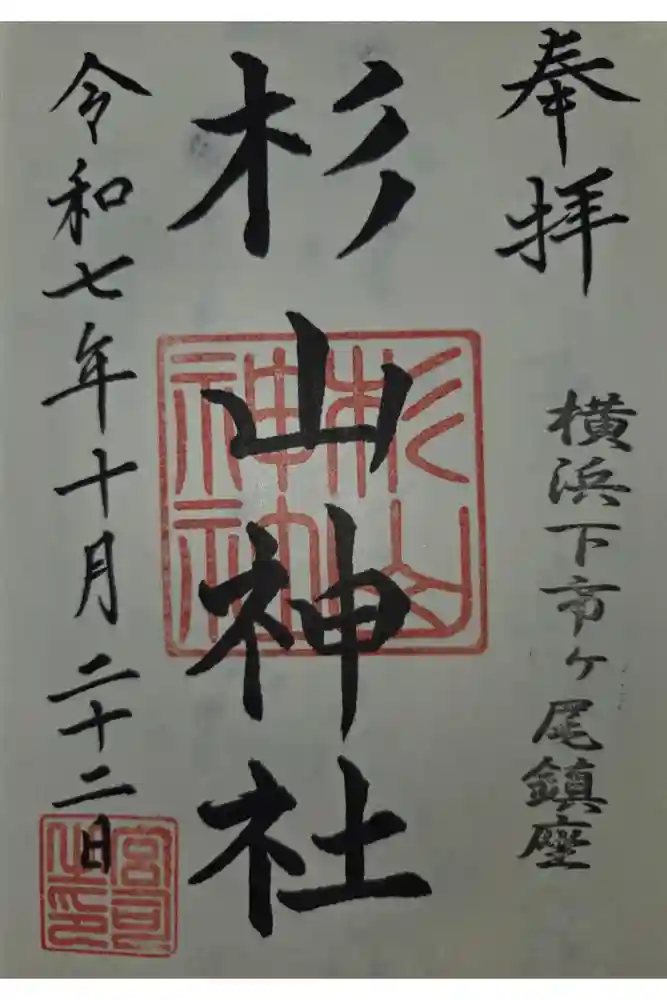 奉拝
横浜下市ケ尾鎮座
杉山神社
杉山
神社
令和七年十月二十二日
宮司
之印